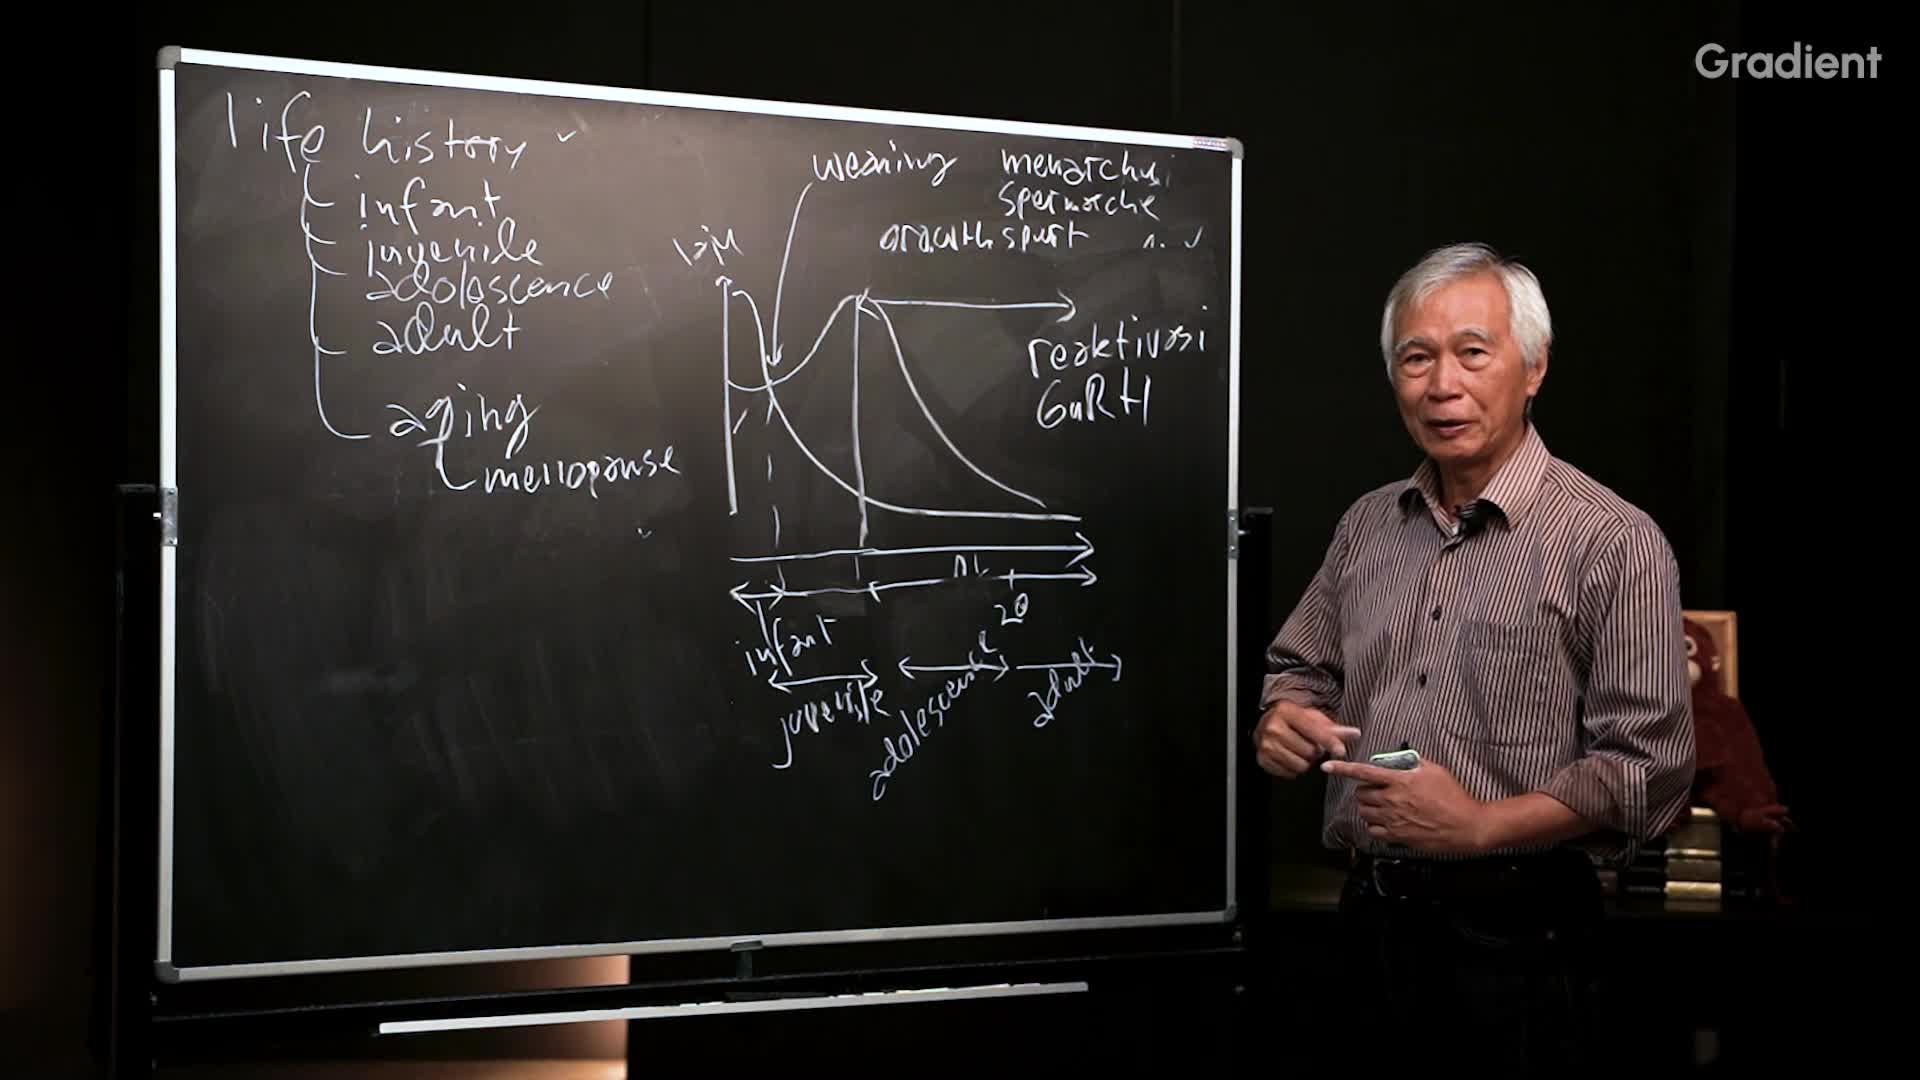 Gradient
life history
infant
juvenile
adolescence
adult
aging
menopause
weaning
menarchu
spermarche
growth spurt
laju
reaktivasi
GnRH
20
infant
juvenile
adolescence
adult